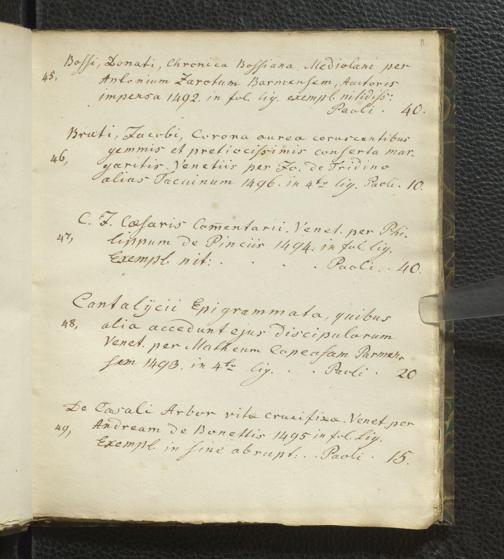 Bossi, Donati, Chronica Bossiana Mediolani per
45, Antonium Zarotum Parmensem, Auctoris
impensa 1492. in fol. lig. exempl. nitidiss:
Paoli . 40.
Brati, Jacobi, Corona aurea coruscantibus
46, gemmis et pretiocissimis conserta mar-
garitis. Venetiis per Jo. de Tridino
alias Tacuinum 1496. in 4to lig. Paoli . 10.
C. J. Cæsaris Com̄entarii. Venet. per Phi-
47, lippum de Pinciis 1494. in fol. lig.
Exempl. nit: . . . . Paoli . 40.
Cantalycii Epigrammata, quibus
48, alia accedunt ejus discipulorum
Venet. per Matheum Capcasam Parmen-
sem 1493. in 4to lig. . . Paoli . 20
De Casali Arbor vitæ crucifixæ. Venet. per
49, Andream de Bonettis 1495 in fol. lig.
Exempl. in fine abrupt: . . Paoli . 15.